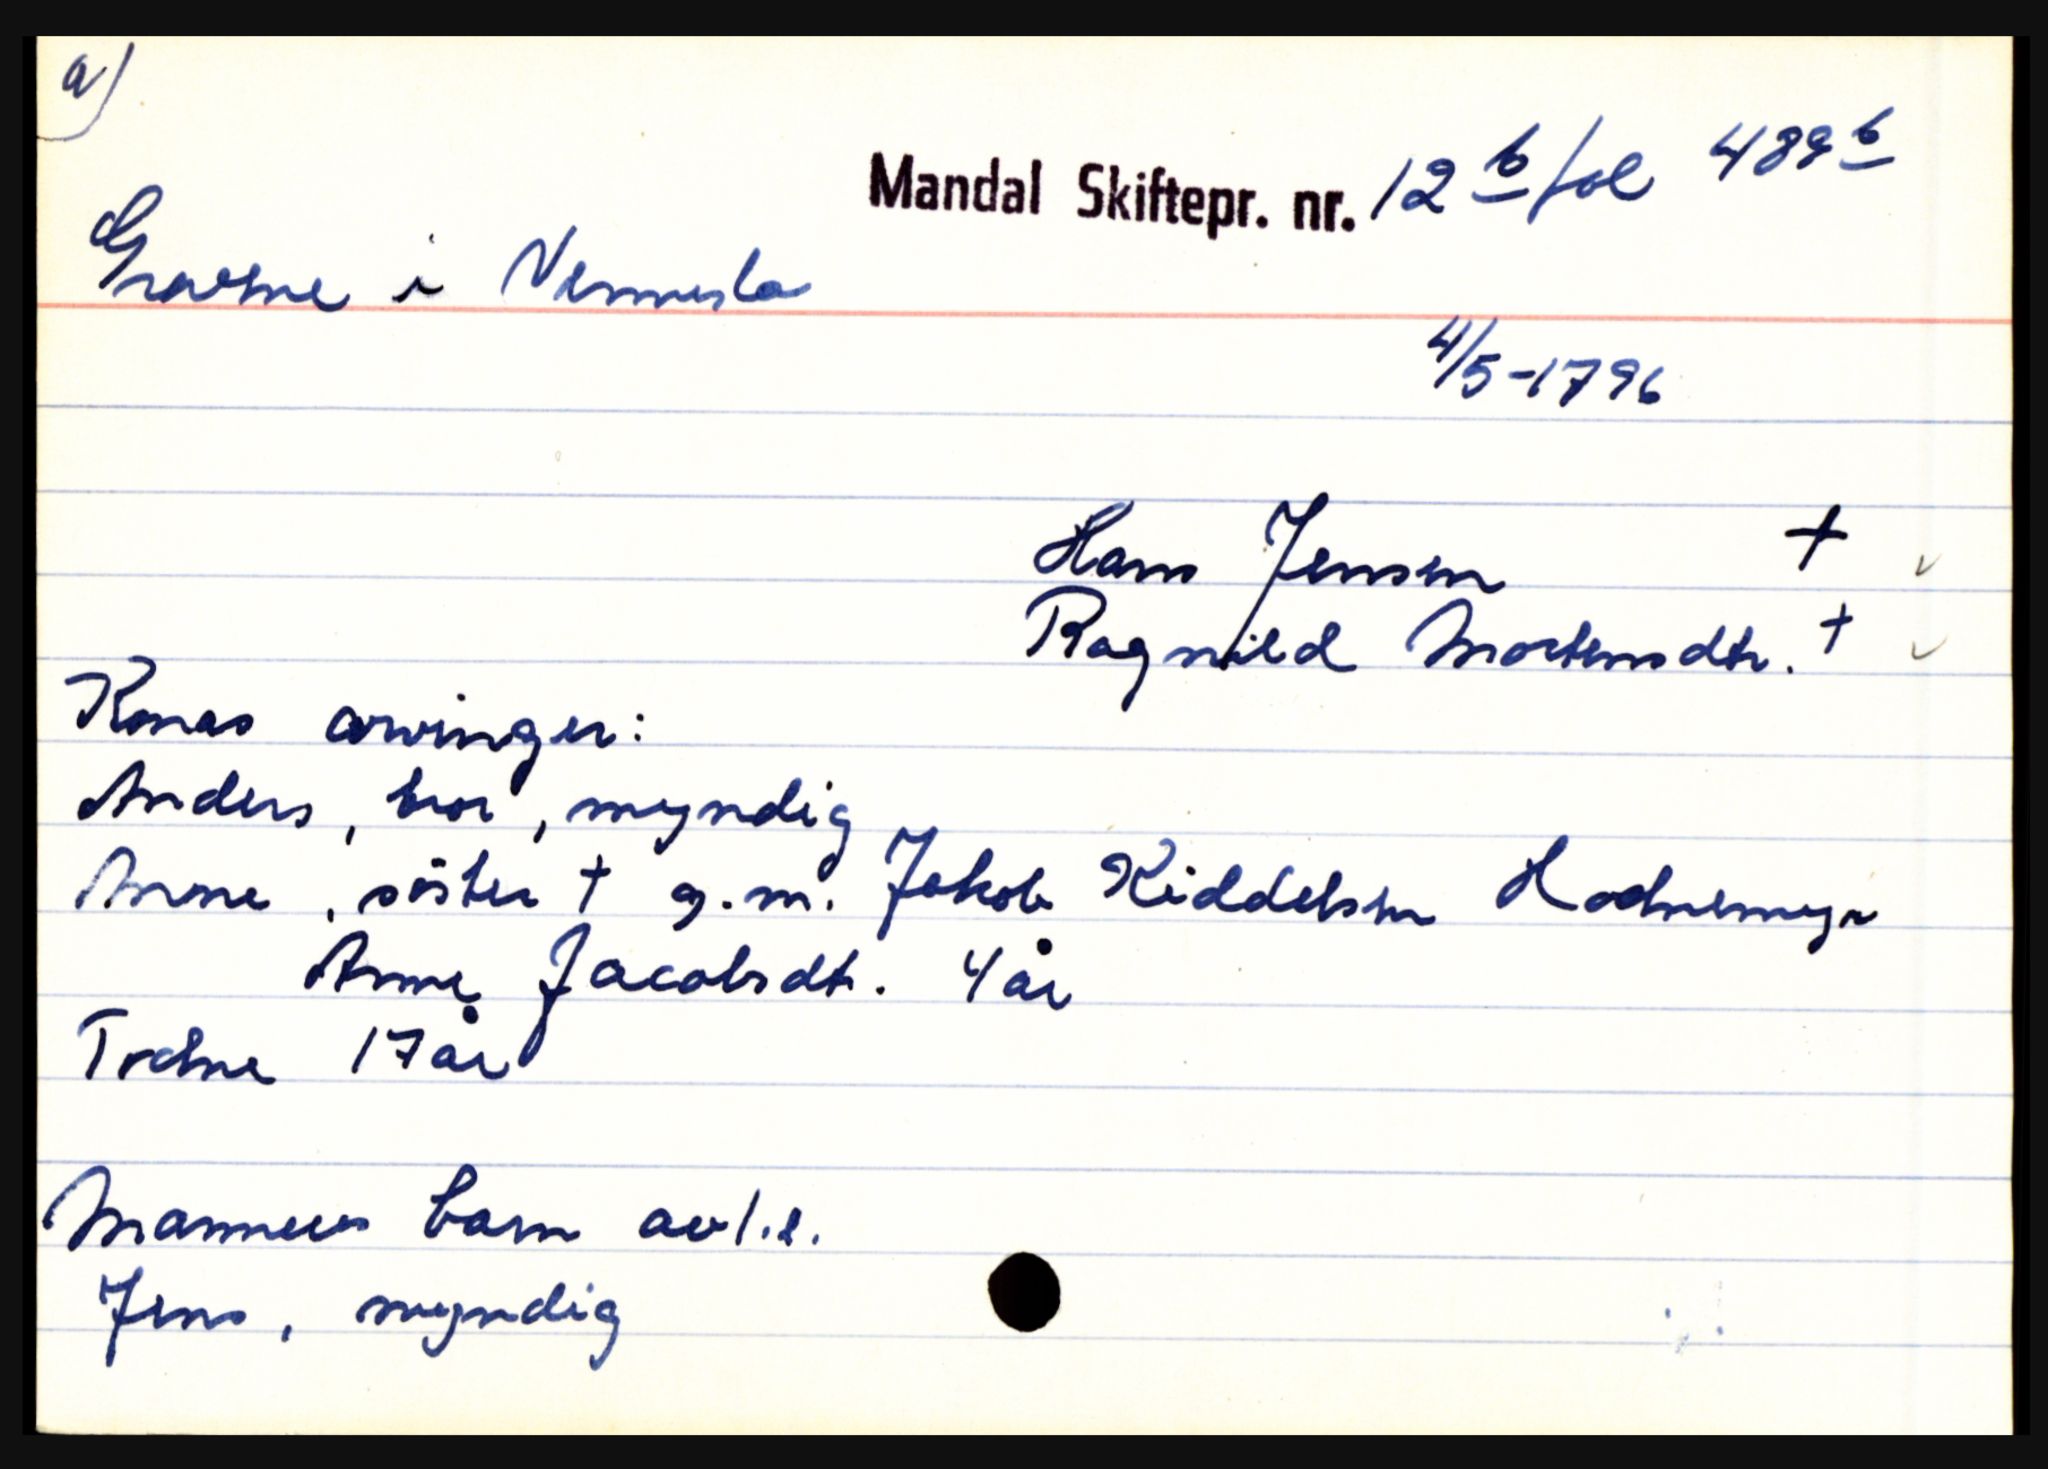 a)
Mandal Skiftepr. nr. 12 b fol 489 b
Gravene i Vennesla
4/5-1796
Hans Jensen †
Ragnild Mortensdtr. †
Konas arvinger:
Anders, bror, myndig
Anne, söster † g.m. Jakob Kiddelsen Hodnemyr
Anne Jacobsdtr. 4 år
Trdne 17 år
Mannens barn av 1.e.
Jens, myndig